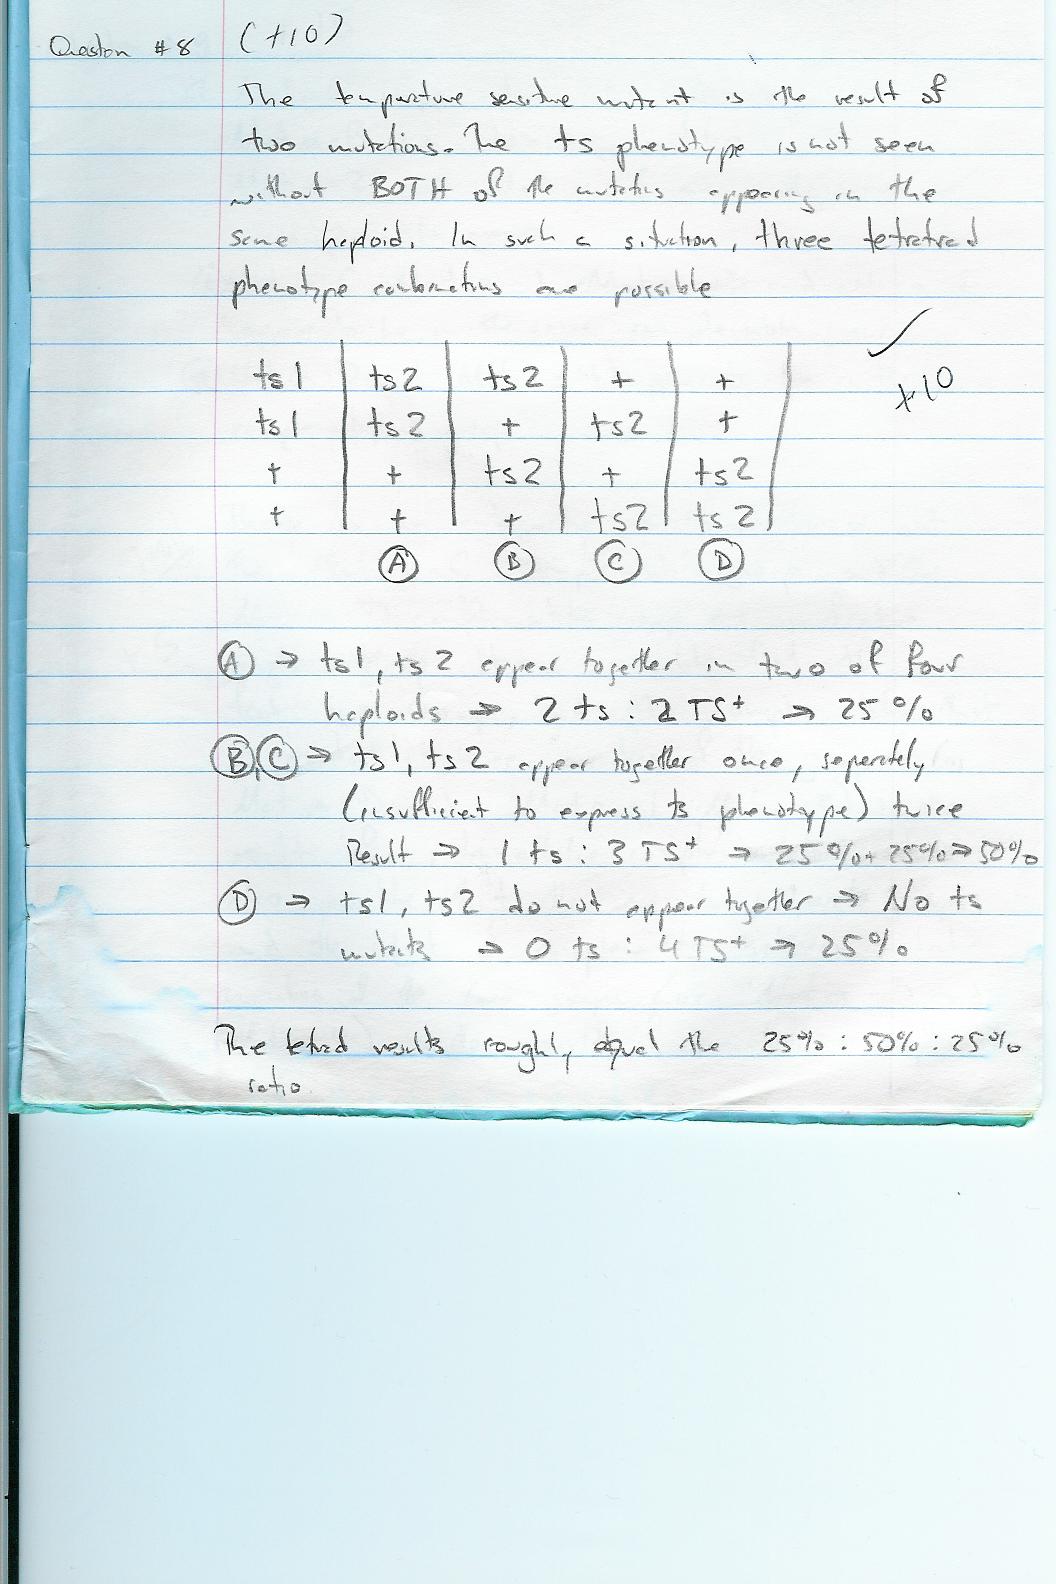 Question #8 (+10)
The temperature sensitive mutant is the result of
two mutations. The ts phenotype is not seen
without BOTH of the mutations appearing in the
same haploid. In such a situation, three tetratrad
phenotype combinations are possible
ts1 ts2 ts2 + +
ts1 ts2 + ts2 +
+ + ts2 + ts2
+ + + ts2 ts2
A B C D
✓
+10
A → ts1, ts2 appear together in two of four
haploids → 2 ts : 2 TS⁺ → 25%
B, C → ts1, ts2 appear together once, seperately
(insufficient to express ts phenotype) twice
Result → 1 ts : 3 TS⁺ → 25%+ 25% → 50%
D → ts1, ts2 do not appear together → No ts
mutants → 0 ts : 4 TS⁺ → 25%
The tetrad results roughly equal the 25% : 50% : 25%
ratio.